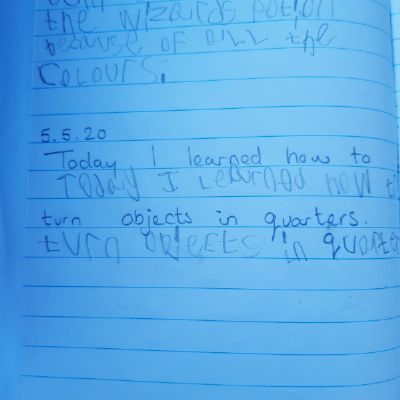 the wizards potion
because of all the
colours.
5.5.20
Today I learned how to
Today I learnod how t
turn objects in quarters.
turn objects in quarte